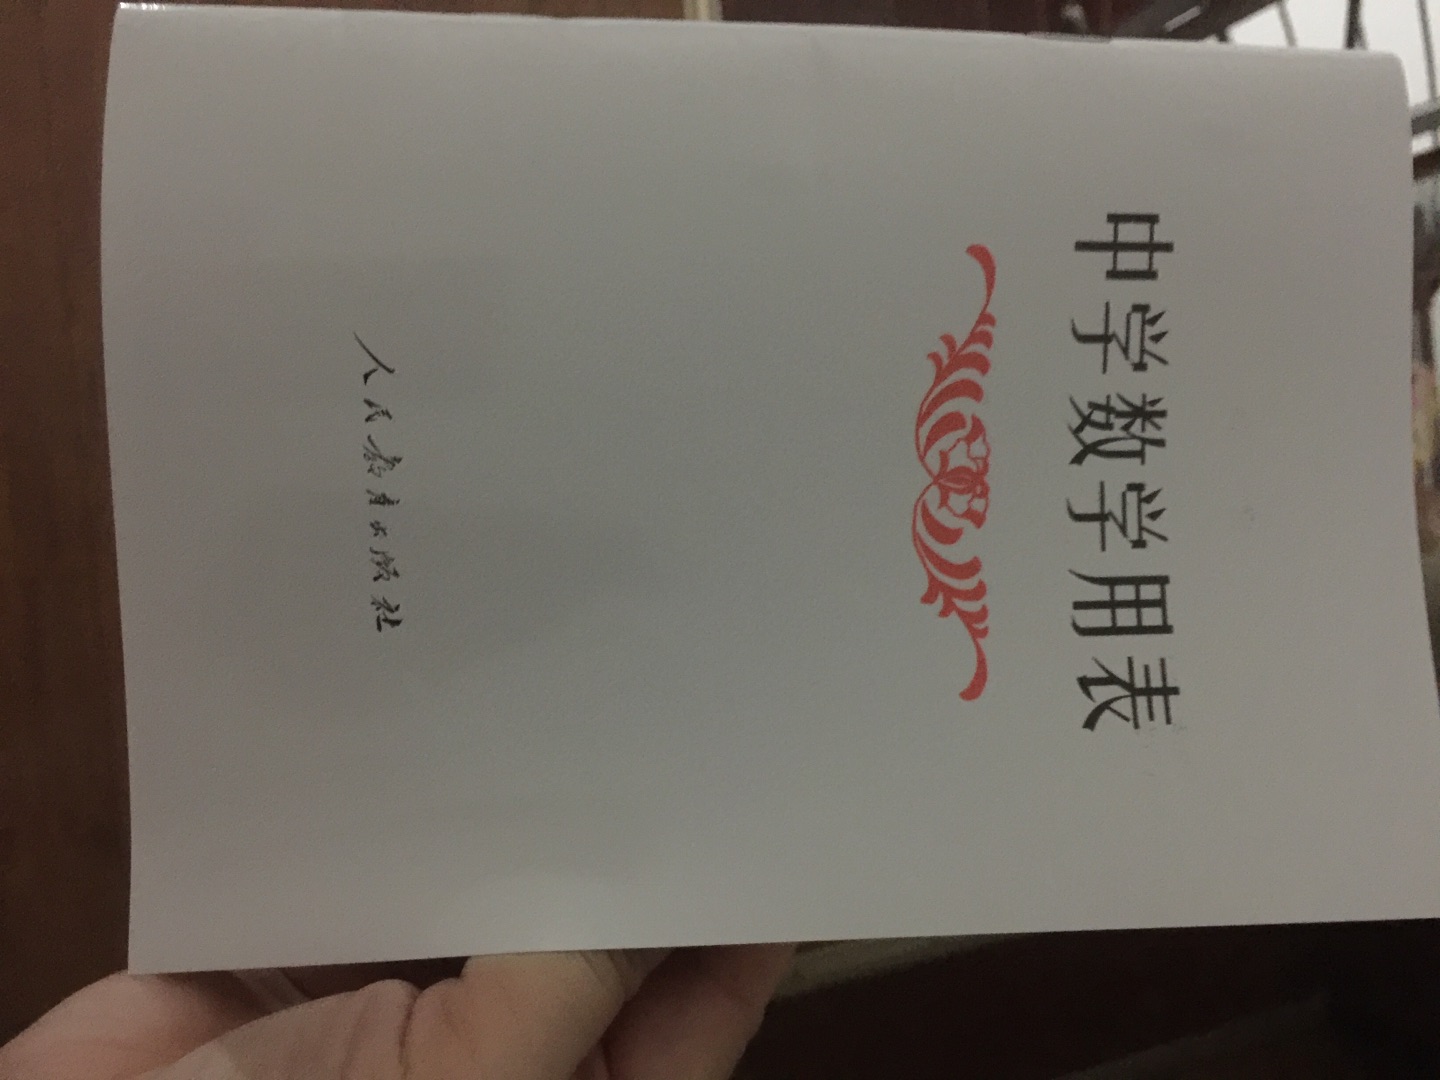 中学数学用表
人民教育出版社